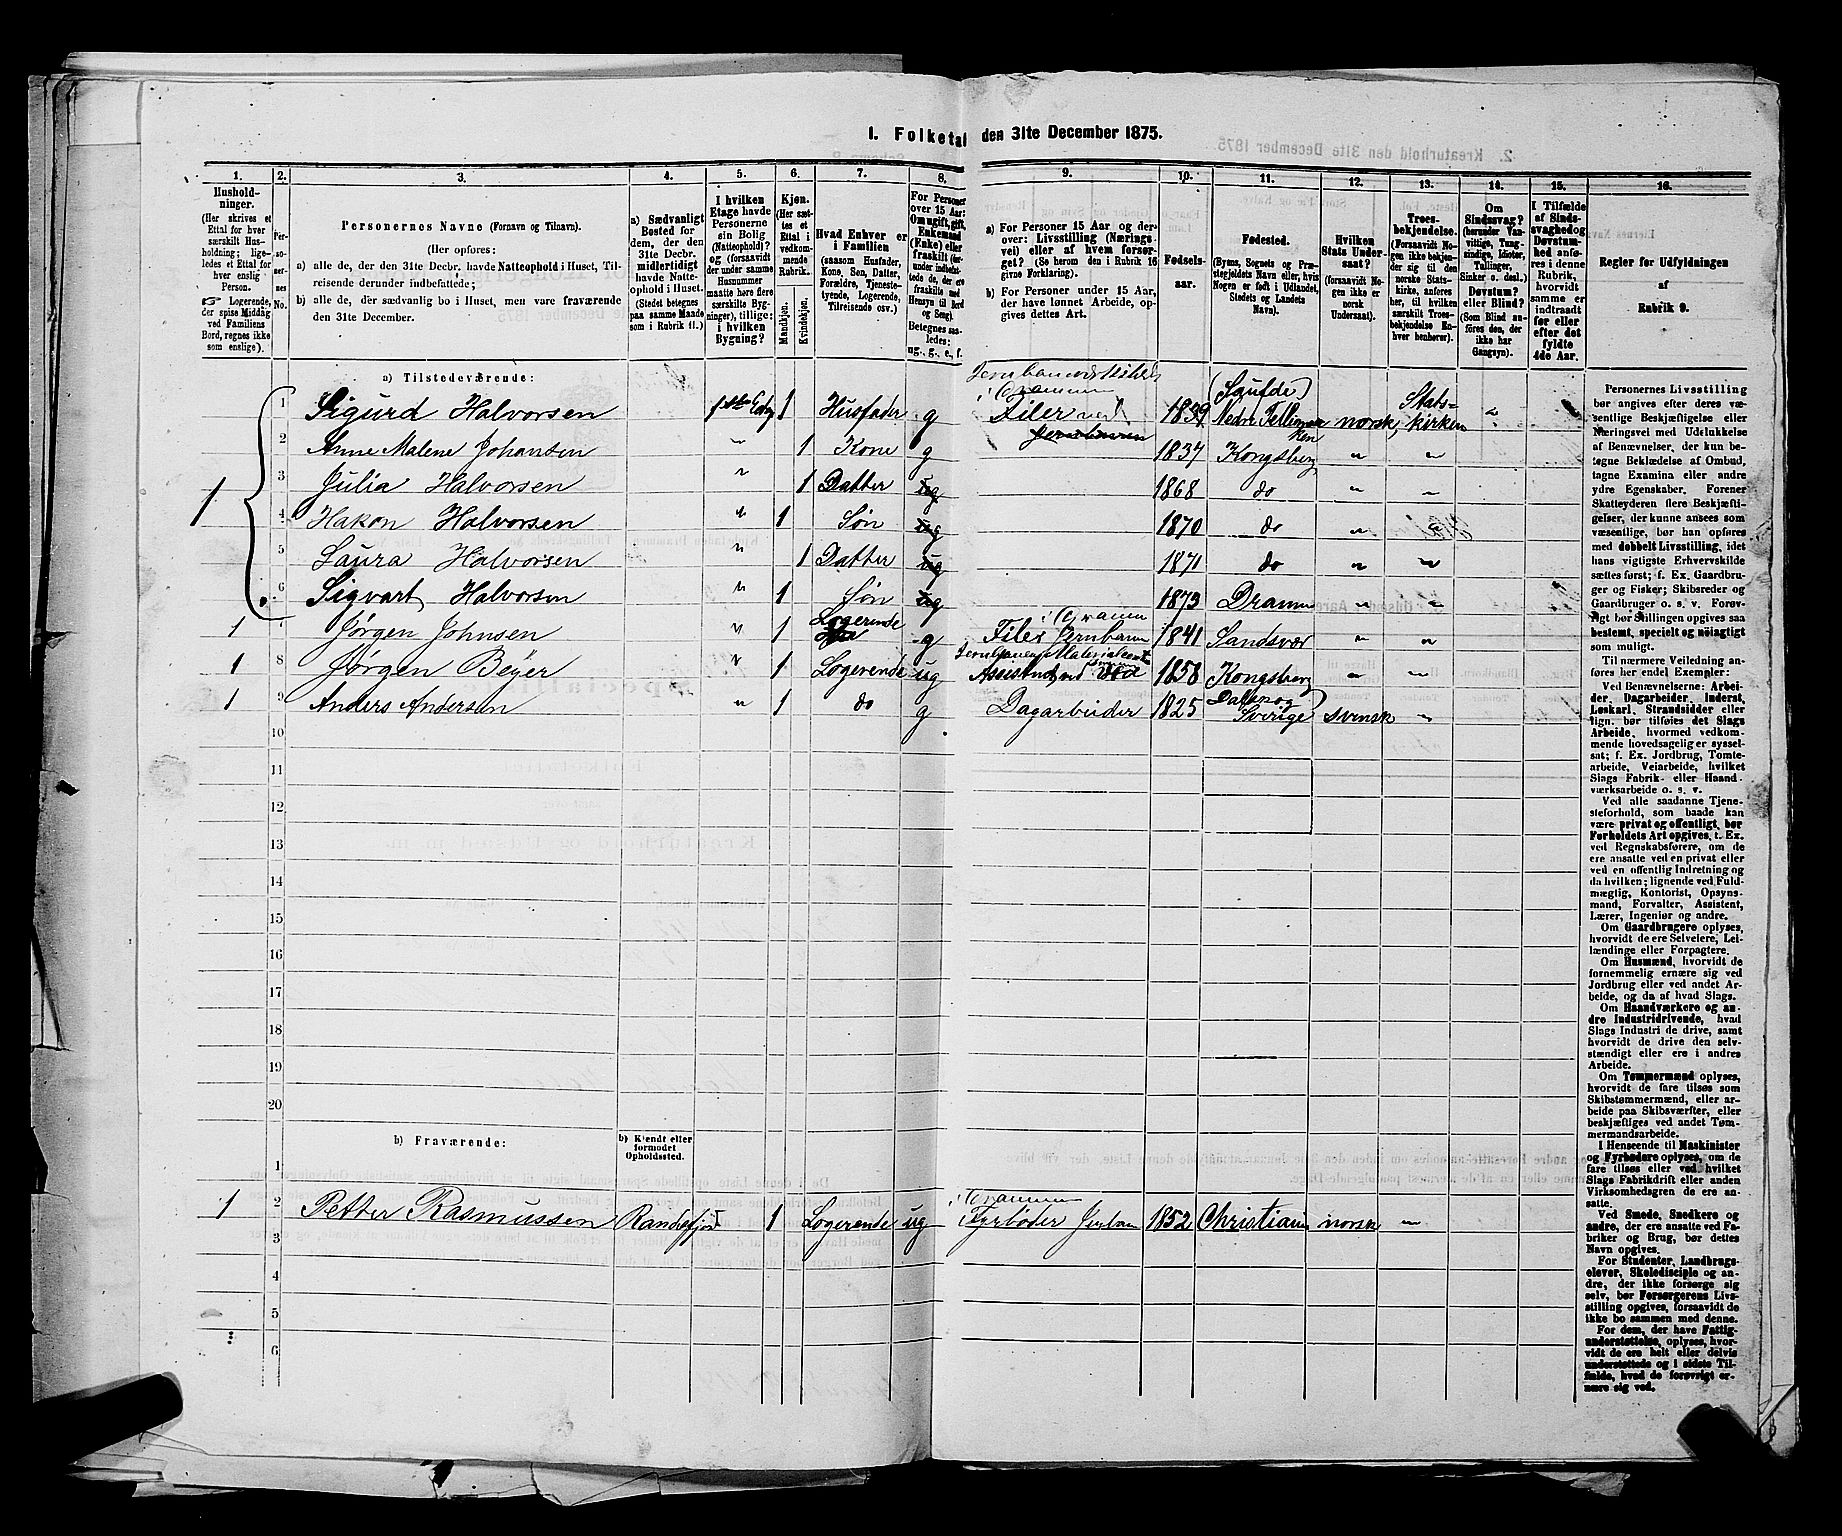 I. Folketal den 31te December 1875.
1. 2. 3. 4. 5. 6. 7. 8. 9. 10. 11. 12. 13. 14. 15. 16.
Husholdninger. (Her skrives et Ettal for hver særskilt Husholdning; ligeledes et Ettal for hver enslig Person. Logerende, der spise Middag ved Familiens Bord, regnes ikke som enslige).
Personernes No.
Personernes Navne (Fornavn og Tilnavn).
(Her opføres:
a) alle de, der den 31te Decbr. havde Natteophold i Huset, Tilreisende derunder indbefattede;
b) alle de, der sædvanlig bo i Huset, men vare fraværende den 31te December.
a) Sædvanligt Bosted for dem, der den 31te Decbr. midlertidigt havde Natteophold i Huset. (Stedet betegnes paa samme Maade som i Rubrik 11.)
I hvilken Etage havde Personerne sin Bolig (Natteophold)? og (forsaavidt der under samme Husnummer maatte høre flere særskilte Bygninger), tillige: i hvilken Bygning?
Kjøn. (Her sættes et Ettal i vedkommende Rubrik. Mandkjøn. Kvindekjøn.
Hvad Enhver er i Familien (saasom Husfader, Kone, Søn, Datter, Forældre, Tjenestetyende, Logerende, Tilreisende osv.)
For Personer over 15 Aar: Om ugift, gift, Enkemand (Enke) eller fraskilt
Betegnes saaledes: ug., g., e., f.
a) For Personer 15 Aar og derover: Livsstilling (Næringsvei) eller af hvem forsørget? (Se herom den i Rubrik 16 givne Forklaring).
b) For Personer under 15 Aar, der have lønnet Arbeide, opgives dettes Art.
Fødselsaar.
Fødested. (Byens, Sognets og Præstegjeldets Navn eller, hvis Nogen er født i Udlandet, Stedets og Landets Navn).
Hvilken Stats Undersaat? (forsaavidt Nogen ikke er norsk Undersaat).
Troesbekjendelse. (Forsaavidt Nogen ikke bekjender sig til den norske Statskirke, anføres her, til hvilken særskilt Troesbekjendelse Enhver henhører).
Om Sindssvag? (herunder Vanvittige, Tungsindige, Idioter, Tullinger, Sinker o. desl.) Døvstum? eller Blind? (Som Blind anføres den, der ikke har Gangsyn).
I Tilfælde af Sindssvaghed og Døvstumhed anføres i denne Rubrik, hvorvidt samme er indtraadt før eller efter det fyldte 4de Aar.
Regler for Udfyldningen af Rubrik 9.
a) Tilstedeværende:
1 1 Sigurd Halvorsen 1ste Etag 1 Husfader g Filer ved 1839 (Saulde) Nedre Tellemarken norsk, Statskirken
2 Anne Malene Johansen " 1 Kone g 1837 Kongsberg " "
3 Julia Halvorsen " 1 Datter ug 1868 do " "
4 Hakon Halvorsen " 1 Søn ug 1870 do " "
5 Laura Halvorsen " 1 Datter ug 1871 do " "
6 Sigvart Halvorsen " 1 Søn ug 1873 Dramn " "
1 7 Jørgen Johnsen " 1 Logerende g Filer Jernbann i Dramn 1841 Sandsvær " "
1 8 Jørgen Beyer " 1 Logerende ug Assistent ved 1858 Kongsberg " "
1 9 Anders Andersen " 1 do g Dagarbeider 1825 Sverige svensk "
10
11
12
13
14
15
16
17
18
19
20
b) Fraværende: b) Kjendt eller formodet Opholdssted.
1
1 2 Petter Rasmussen Randsfjord 1 Logerende ug Fyrbøder Jernban i Drammen 1852 Christiania norsk "
3
4
5
6
Personernes Livsstilling bør angives efter deres væsentlige Beskjæftigelse eller Næringsvei med Udelukkelse af Benævnelser, der kun betegne Beklædelse af Ombud, tagne Examina eller andre ydre Egenskaber. Forener Skatteyderen flere Beskjæftigelser, der kunne ansees som væsentlige, bør han opføres med dobbelt Livsstilling, idet hans vigtigste Erhvervskilde sættes først; f. Ex. Gaardbruger og Fisker; Skibsreder og Gaardbruger o. s. v. Forøvrigt bør Stillingen opgives saa bestemt, specielt og nøiagtigt som muligt.
Til nærmere Veiledning anføres her endel Exempler:
Ved Benævnelserne: Arbeider, Dagarbeider, Inderst, Løskarl, Strandsidder eller lign. bør tilføies det Slags Arbeide, hvormed vedkommende hovedsagelig er sysselsat; f. Ex. Jordbrug, Tomtearbeide, Veiarbeide, hvilket Slags Fabrik- eller Haandværksarbeide o. s. v.
Ved alle saadanne Tjenesteforhold, som baade kan være privat og offentligt, bør Forholdets Art opgives, t. Ex. ved Regnskabsførere, om de ere ansatte ved en privat eller ved en offentlig Indretning og da hvilken; lignende ved Fuldmægtig, Kontorist, Opsynsmand, Forvalter, Assistent, Lærer, Ingeniør og andre.
Om Gaardbrugere oplyses, hvorvidt de ere Selveiere, Leilændinge eller Forpagtere.
Om Husmænd, hvorvidt de fornemmelig ernære sig ved Jordbrug eller ved andet Arbeide, og da af hvad Slags.
Om Haandværkere og andre Industridrivende, hvad Slags Industri de drive, samt hvorvidt de drive den selvstændigt eller ere i andres Arbeide.
Om Tømmermænd oplyses, hvorvidt de fare tilsøs som Skibstømmermænd, eller arbeide paa Skibsværfter, eller beskjæftiges ved andet Tømmermandsarbeide.
I Henseende til Maskinister og Fyrbødere oplyses, om de fare tilsøs eller ved hvilket Slags Fabrikdrift eller anden Virksomhedsgren de ere ansatte.
Ved Smede, Snedkere og andre, der ere ansatte ved Fabriker og Brug, bør dettes Navn opgives.
For Studenter, Landbrugselever, Skoledisciple og andre, der ikke forsørge sig selv, bør Forsørgerens Livsstilling opgives, forsaavidt de ikke bo sammen med denne.
For dem, der have Fattigunderstøttelse, oplyses, hvorvidt de ere helt eller delvis understøttede og i sidste Tilfælde, hvad de forøvrigt ernære sig ved.